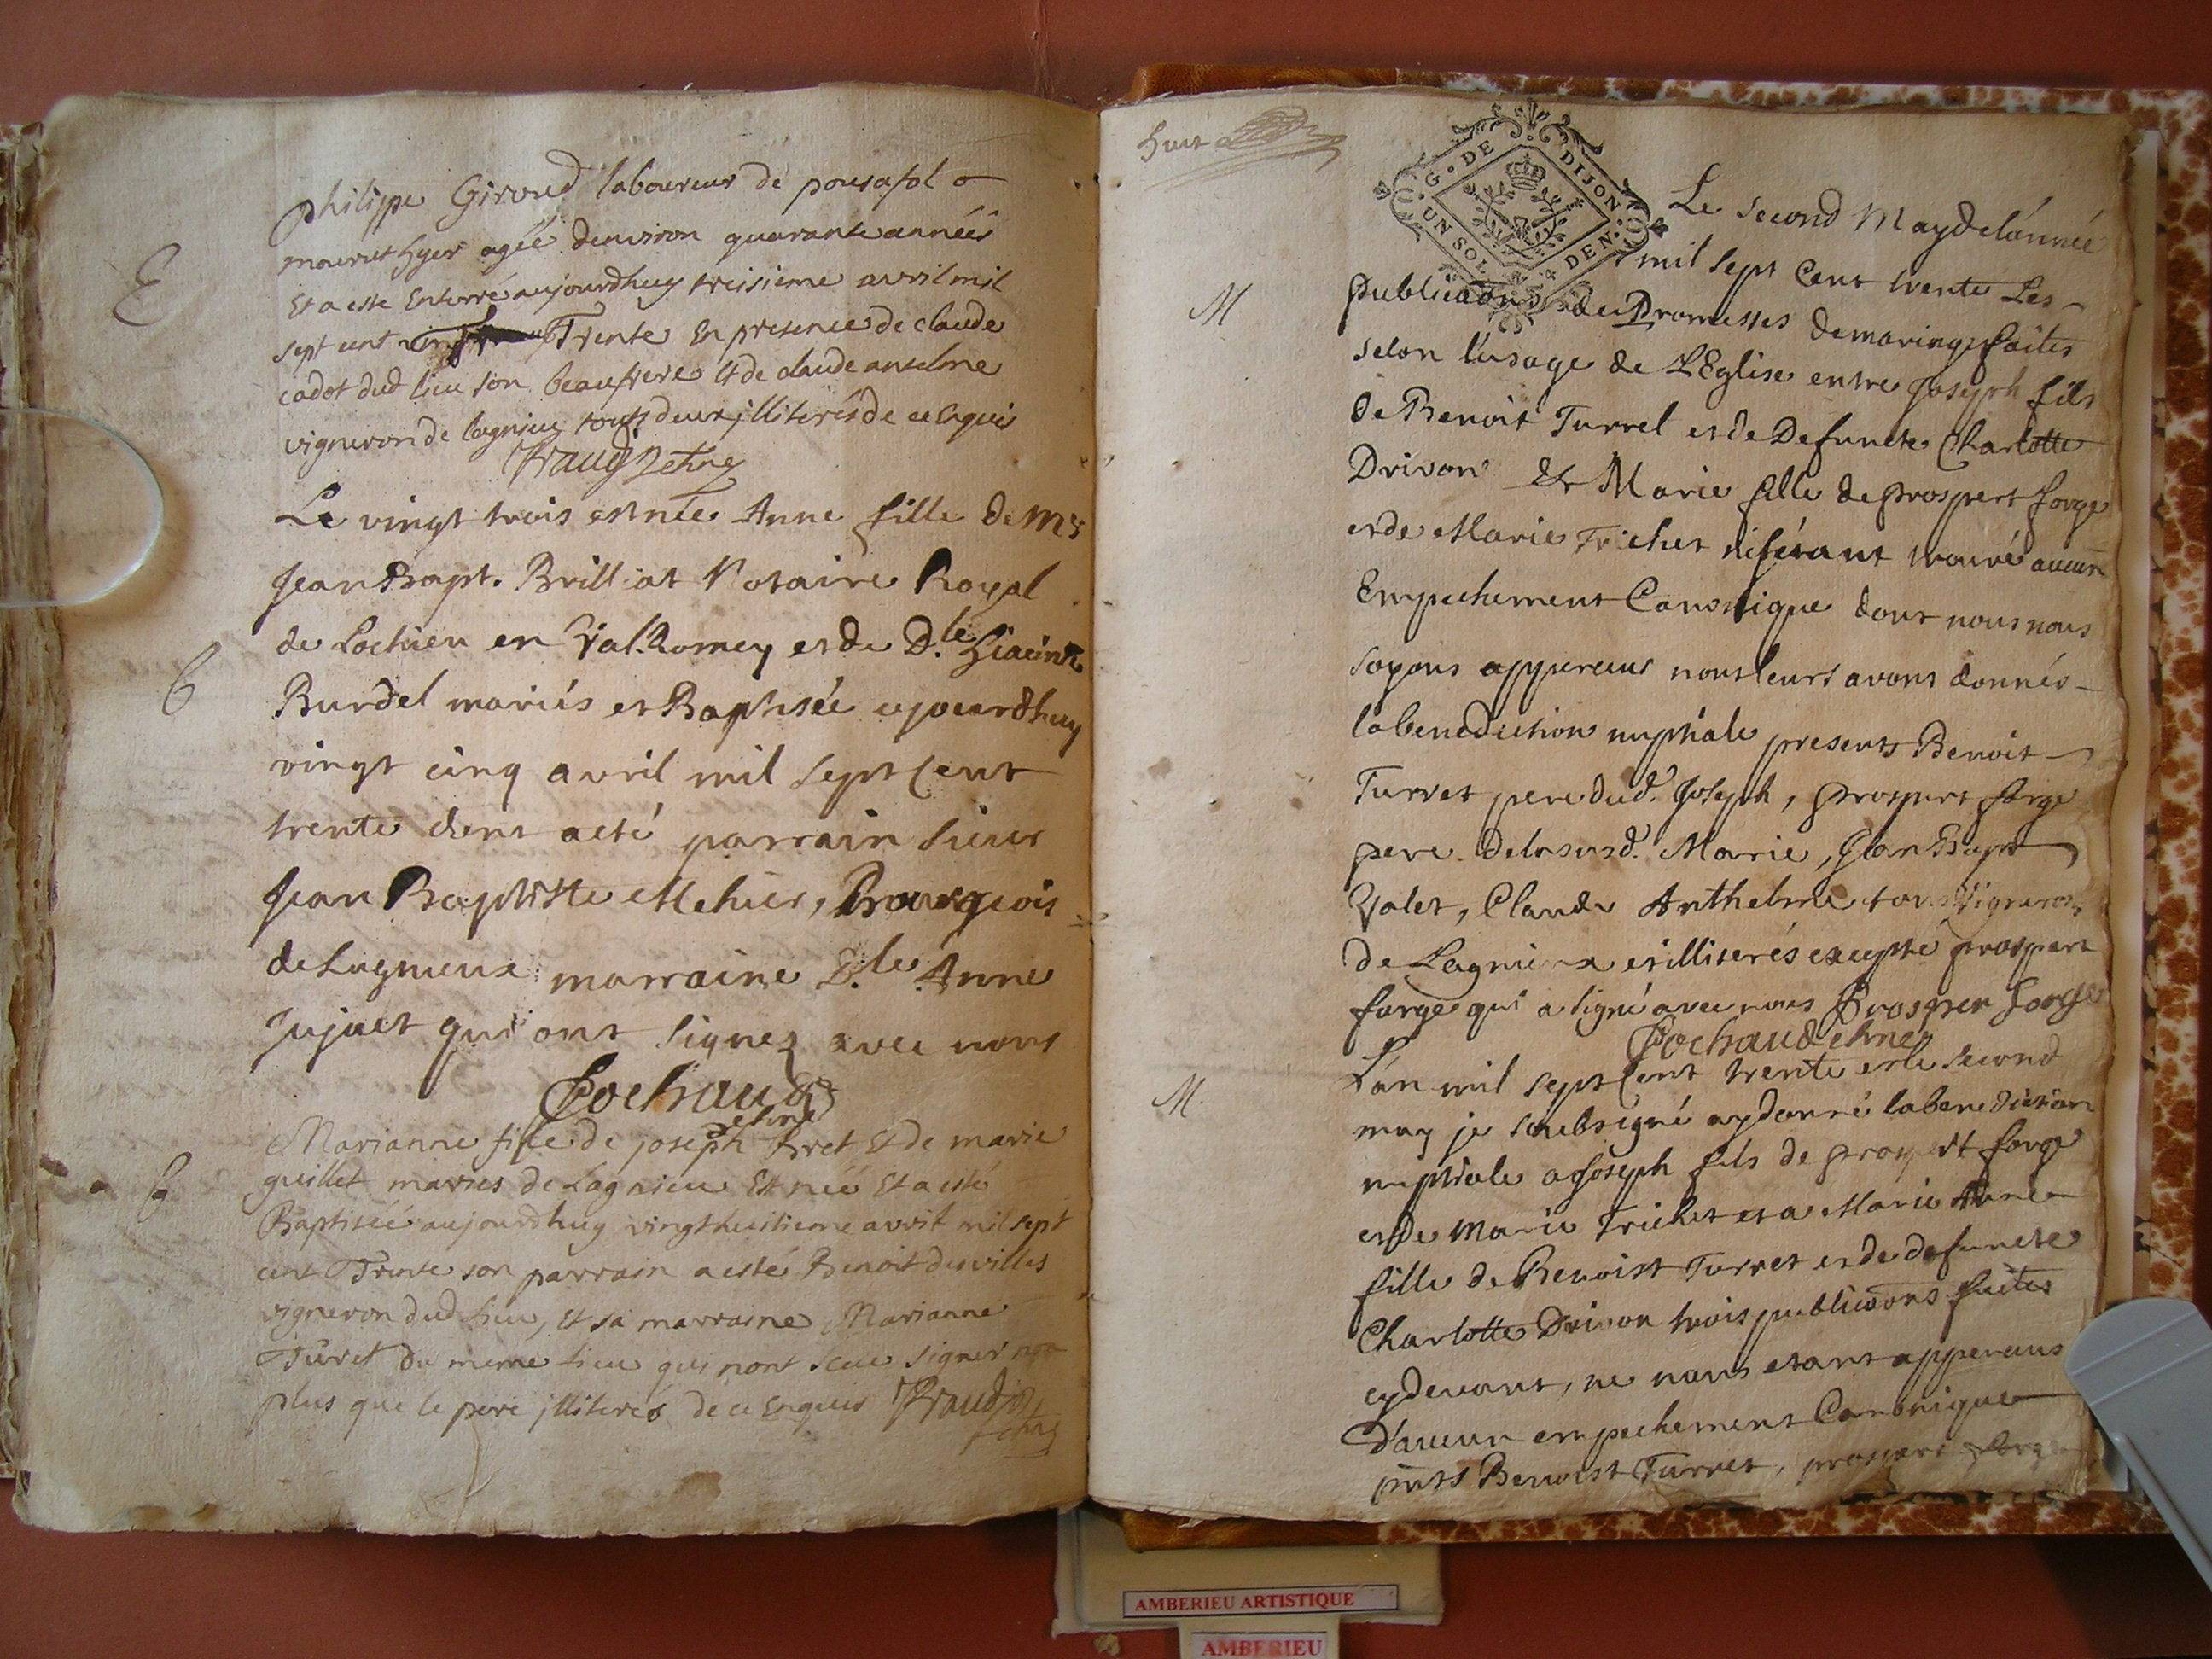 E
philippe Giroud laboureur de pousafol
mourut hyer agéé denviron quarante années
Et a esté Enterré aujourdhuy treisieme avril mil
sept cent Trente En presence de claude
cadot dud lieu son beaufrere & de claude anselme
vigneron de lagnieu touts deux jlliterés de ce Enquis
B
Le vingt trois est née Anne fille de Mr
Jean Bapt. Brilliat Notaire Royal
de Lochieu en Val.Romey et de D.le Hiacinte
Burdel mariés et Baptisée ajourdhuy
vingt cinq avril mil sept Cent
trente dont a eté parrain sieur
Jean Baptiste Mehier, Bourgeois
de Lagnieux marraine D.le Anne
Jujuet qui ont signez avec nous
Pochaud
B
Marianne fille de joseph & de marie
guillet mariés de Lagnieu Est néé Et a esté
Baptiséé aujourdhuy vingthuitieme avril mil sept
cent Trente son parrain a esté Benoit desvilles
vigneron dud lieu, & sa marraine Marianne
Turet du meme lieu qui nont sceu signer non
plus que le pere jlliterés de ce Enquis
huit
G. DE DIJON
UN SOL 4 DEN.
M
Le second May de lánnée
mil sept Cent trente Les
publications des Promesses de mariage faites
selon l'usage de L'Eglise entre Joseph fils
de Benoit Turrel et de Defuncte Charlotte
Drivon & Marie fille de prospert forge
et de Marie Trichet n'isétant trouvé aucun
Empechement Canonique dont nous nous
soyons apperceus nous leurs avons donnés
la benediction nuptiale presents Benoit
Turret pere dud. Joseph, prospert forge
pere de la susd. Marie, Jean Bapt
Volet, Claude Anthelme tous vignerons
de Lagnieux et illiterés excepté prospert
forge qui a signé avec nous Prosper forge
Pochaud
M.
L'an mil sept Cent trente et le second
may je soubsigné ay donné la benediction
nuptiale a Joseph fils de prospert forge
et de Marie Trichet et a Marie Anne
fille de Benoist Turret et de defuncte
Charlotte Drivon trois publicaons faites
cydevant, ne nous etant apperceus
d'aucun empechement Canonique
pnts Benoist Turret, prospert forge
AMBERIEU ARTISTIQUE
AMBERIEU